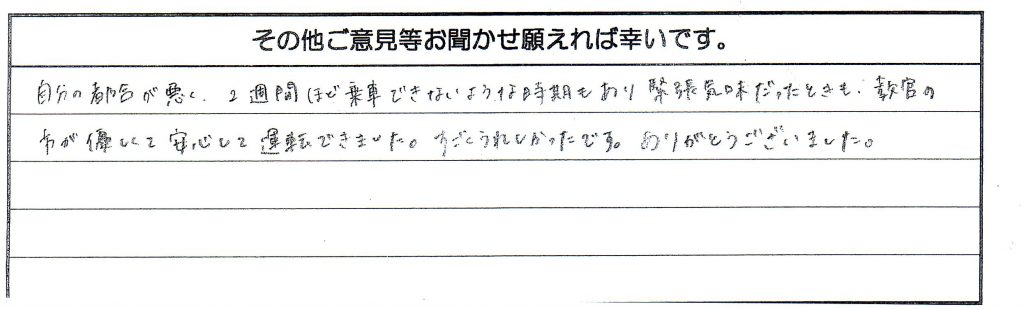 その他ご意見等お聞かせ願えれば幸いです。
自分の都合が悪く、2週間ほど乗車できないような時期もあり緊張気味だったときも、教官の
方が優しくて安心して運転できました。すごくうれしかったです。ありがとうございました。